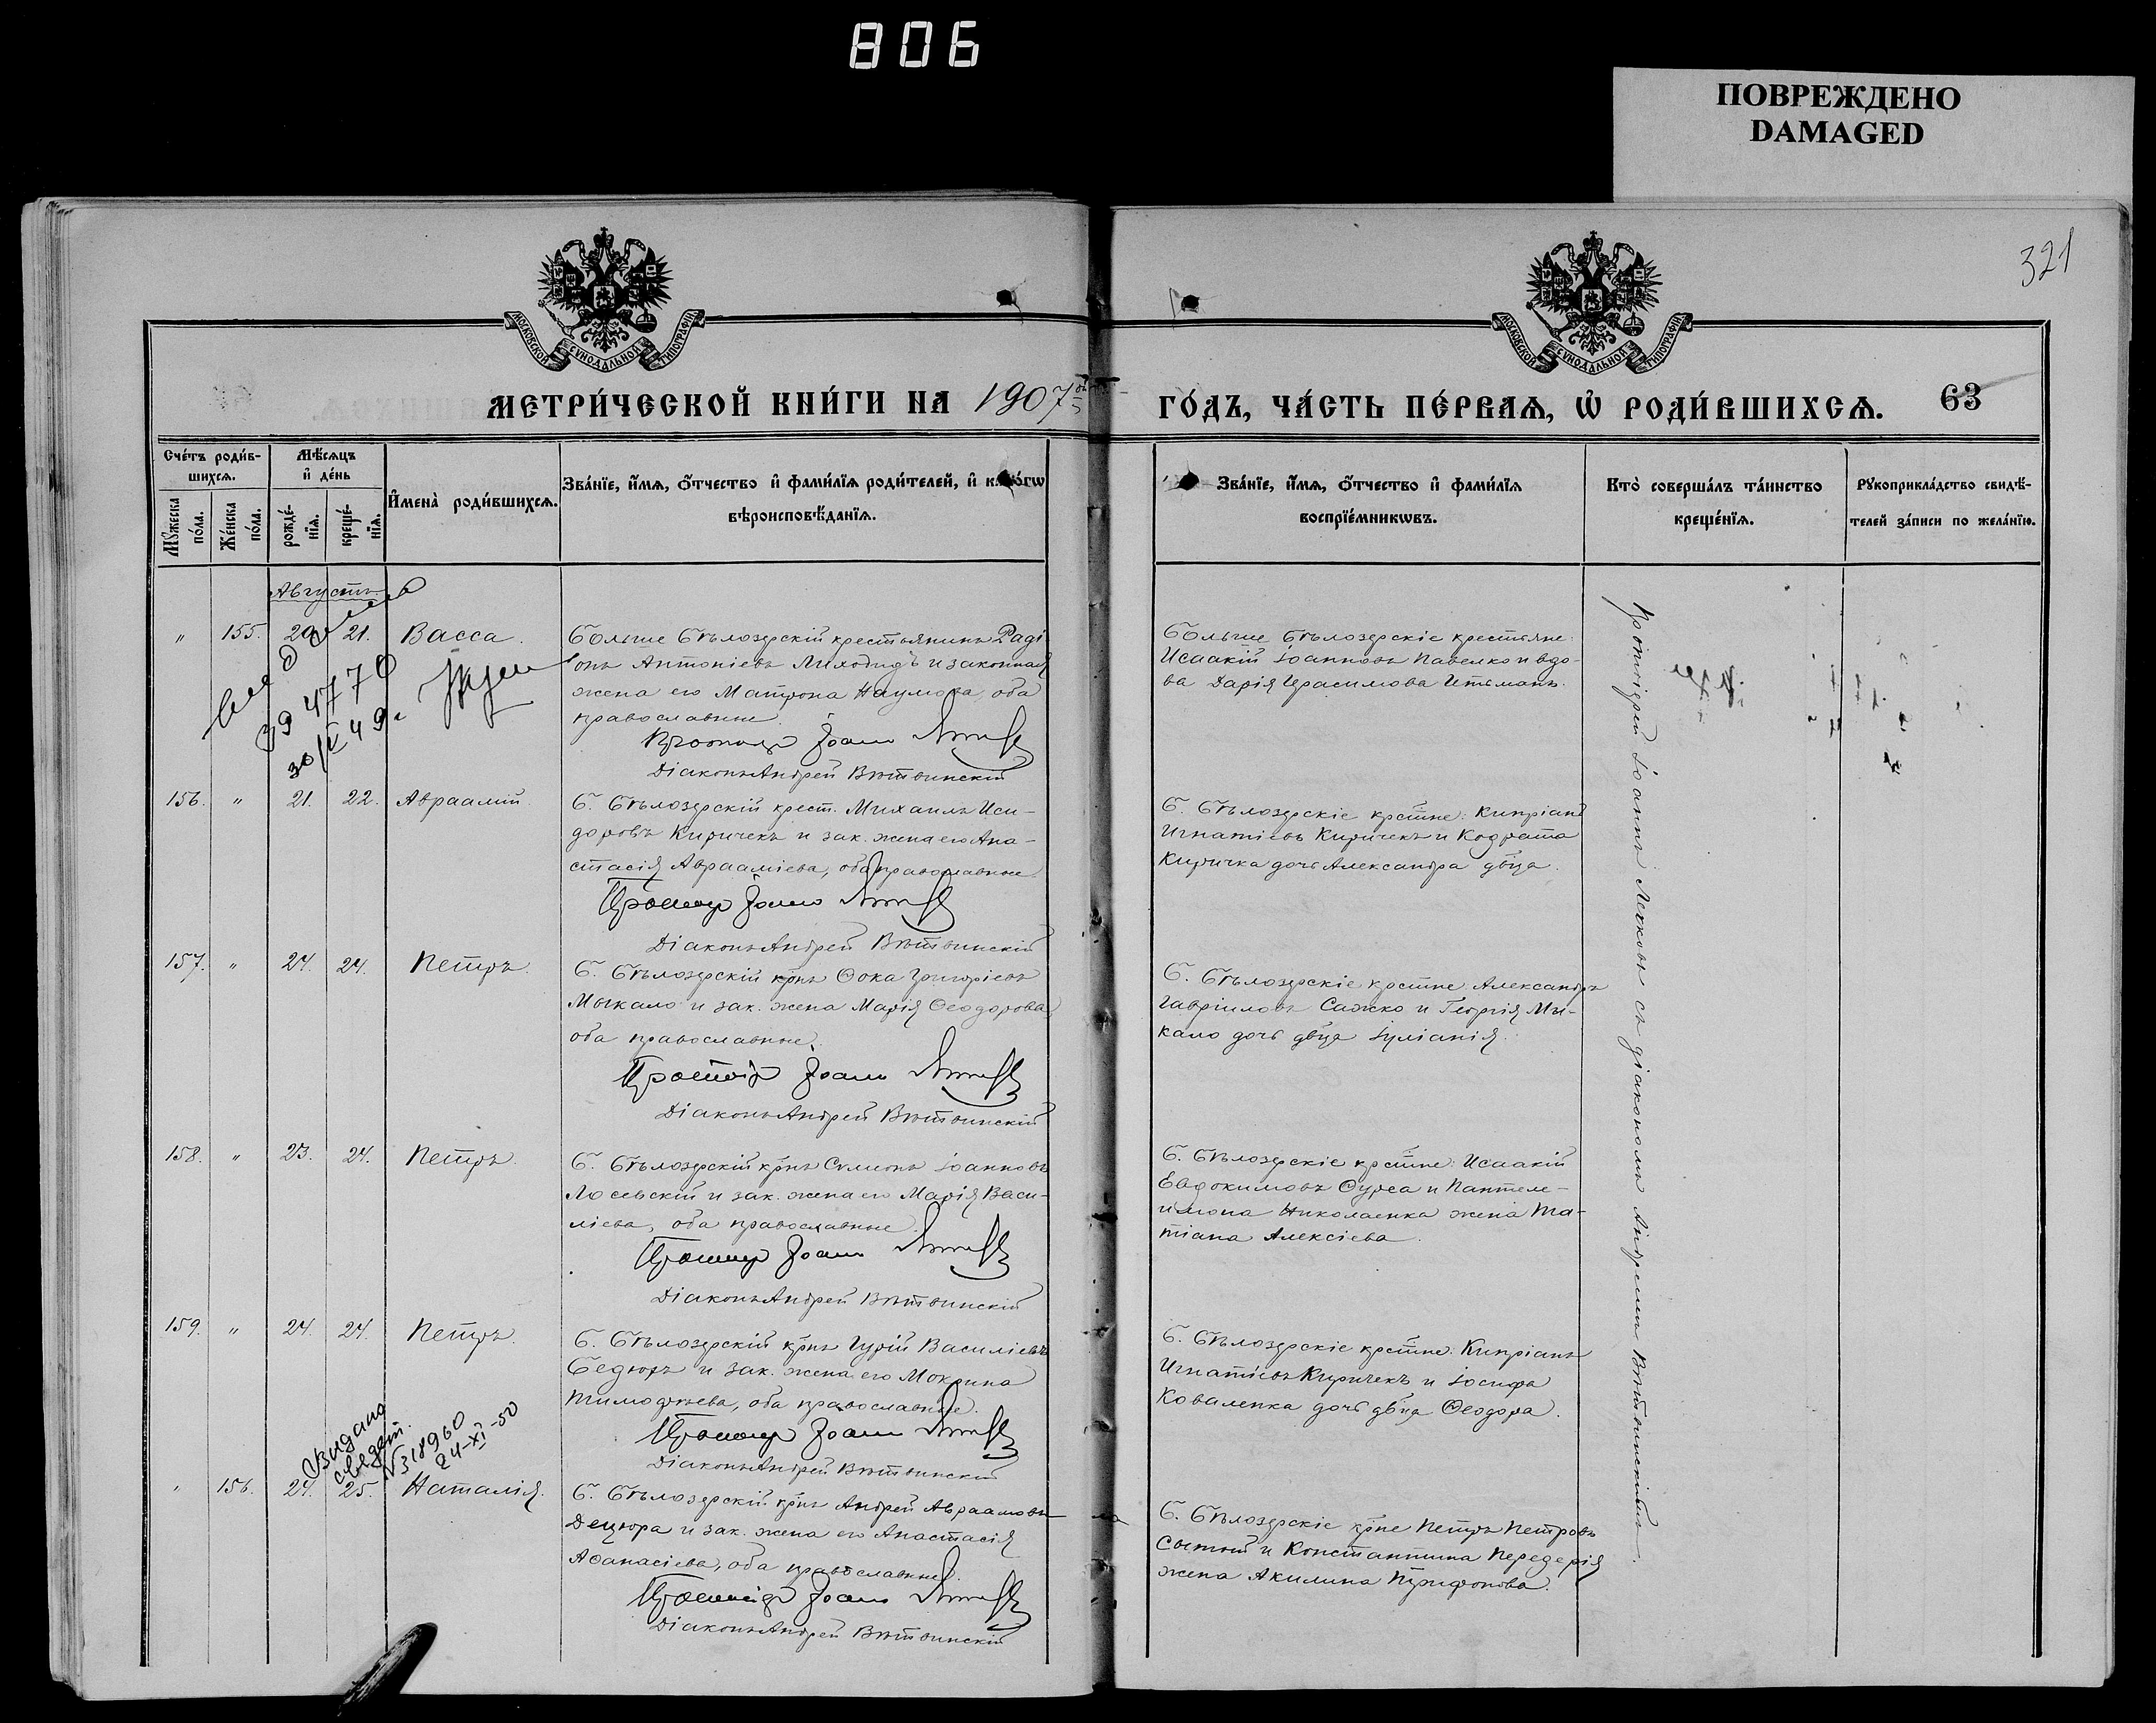 806
ПОВРЕЖДЕНО
DAMAGED
321
МОСКОВСКОЙ СѴНОДАЛЬНОЙ ТИПОГРАФІИ
МОСКОВСКОЙ СѴНОДАЛЬНОЙ ТИПОГРАФІИ
МЕТРИ́ЧЕСКОЙ КНИ́ГИ НА 1907 ГО́ДЪ, ЧА́СТЬ ПЕ́РВАЯ, Ѡ РОДИ́ВШИХСѦ. 63
Сче́тъ роди́в-
шихсѧ.
Мꙋжеска по́ла.
Же́нска по́ла.
Мѣ́сѧцъ
и҆ де́нь
рожде́-
нїѧ.
креще́-
нїѧ.
И҆мена̀ роди́вшихсѧ.
Зва́нїе, и҆́мѧ, ѻ҆́тчество и҆ фами́лїѧ роди́телей, и҆
вѣроисповѣ́данїѧ.
Зва́нїе, и҆́мѧ, ѻ҆́тчество и҆ фами́лїѧ
воспрїе́мникѡвъ.
Кто̀ соверша́лъ та́инство
креще́нїѧ.
Рꙋкоприкла́дство свидѣ́-
телей за́писи по жела́нїю.
Августъ
" 155. 20. 21. Васса.
Больше Бѣлозерскій крестьянинъ Раді
онъ Антоніевъ Лиходидъ и законная
жена его Матрона Наумова, оба
православные.
Протоіер Іоанн
Діаконъ Андрей Вѣтвинскій
Больше Бѣлозерскіе крестьяне:
Исаакій Іоанновъ Павелко и вдо-
ва Дарія Герасимова Гетьманъ.
394770
30/V 49г
156. " 21. 22. Авраамій.
Б. Бѣлозерскій крест. Михаилъ Иси-
доровъ Киричекъ и зак. жена его Ана-
стасія Авраамiева, оба православные
Протоіер Іоанн
Діаконъ Андрей Вѣтвинскій
Б. Бѣлозерскіе крстне: Кипріанъ
Игнатіевъ Киричекъ и Кодрата
Киричка дочь Александра двца.
157. " 24. 24. Петръ.
Б. Бѣлозерскій крнъ Ѳока Григоріевъ
Мыкало и зак. жена Марія Ѳеодорова
оба православные.
Протоіер Іоанн
Діаконъ Андрей Вѣтвинскій
Б. Бѣлозерскіе крстне: Александръ
Гавріиловъ Сажко и Георгія Мы-
кало дочь двца Іуліанія.
158. " 23. 24. Петръ.
Б. Бѣлозерскій крнъ Симеонъ Іоанновъ
Лосевскій и зак. жена его Марія Васи-
ліева, оба православные.
Протоіер Іоанн
Діаконъ Андрей Вѣтвинскій
Б. Бѣлозерскіе крстне: Исаакій
Евдокимовъ Ѳурса и Пантеле-
имона Николаенка жена Та-
тіана Алексіева.
159. " 24. 24. Петръ.
Б. Бѣлозерскій крнъ Гурій Василіевъ
Бедюръ и зак. жена его Мокрина
Тимофѣева, оба православные.
Протоіер Іоанн
Діаконъ Андрей Вѣтвинскій
Б. Бѣлозерскіе крстне: Кипріанъ
Игнатіевъ Киричекъ и Іосифа
Коваленка дочь двца Ѳеодора.
Видано
свідет.
N318960
24-XI-50
" 156. 24. 25. Наталія.
Б. Бѣлозерскій крнъ Андрей Авраамовъ
Децюра и зак. жена его Анастасія
Аѳанасіева, оба православные.
Протоіер Іоанн
Діаконъ Андрей Вѣтвинскій
Б. Бѣлозерскіе крне Петръ Петровъ
Сытый и Константина Передерія
жена Акилина Трифонова.
Протоіерей Іоаннъ Легковъ съ діакономъ Андреемъ Вѣтвинскимъ.